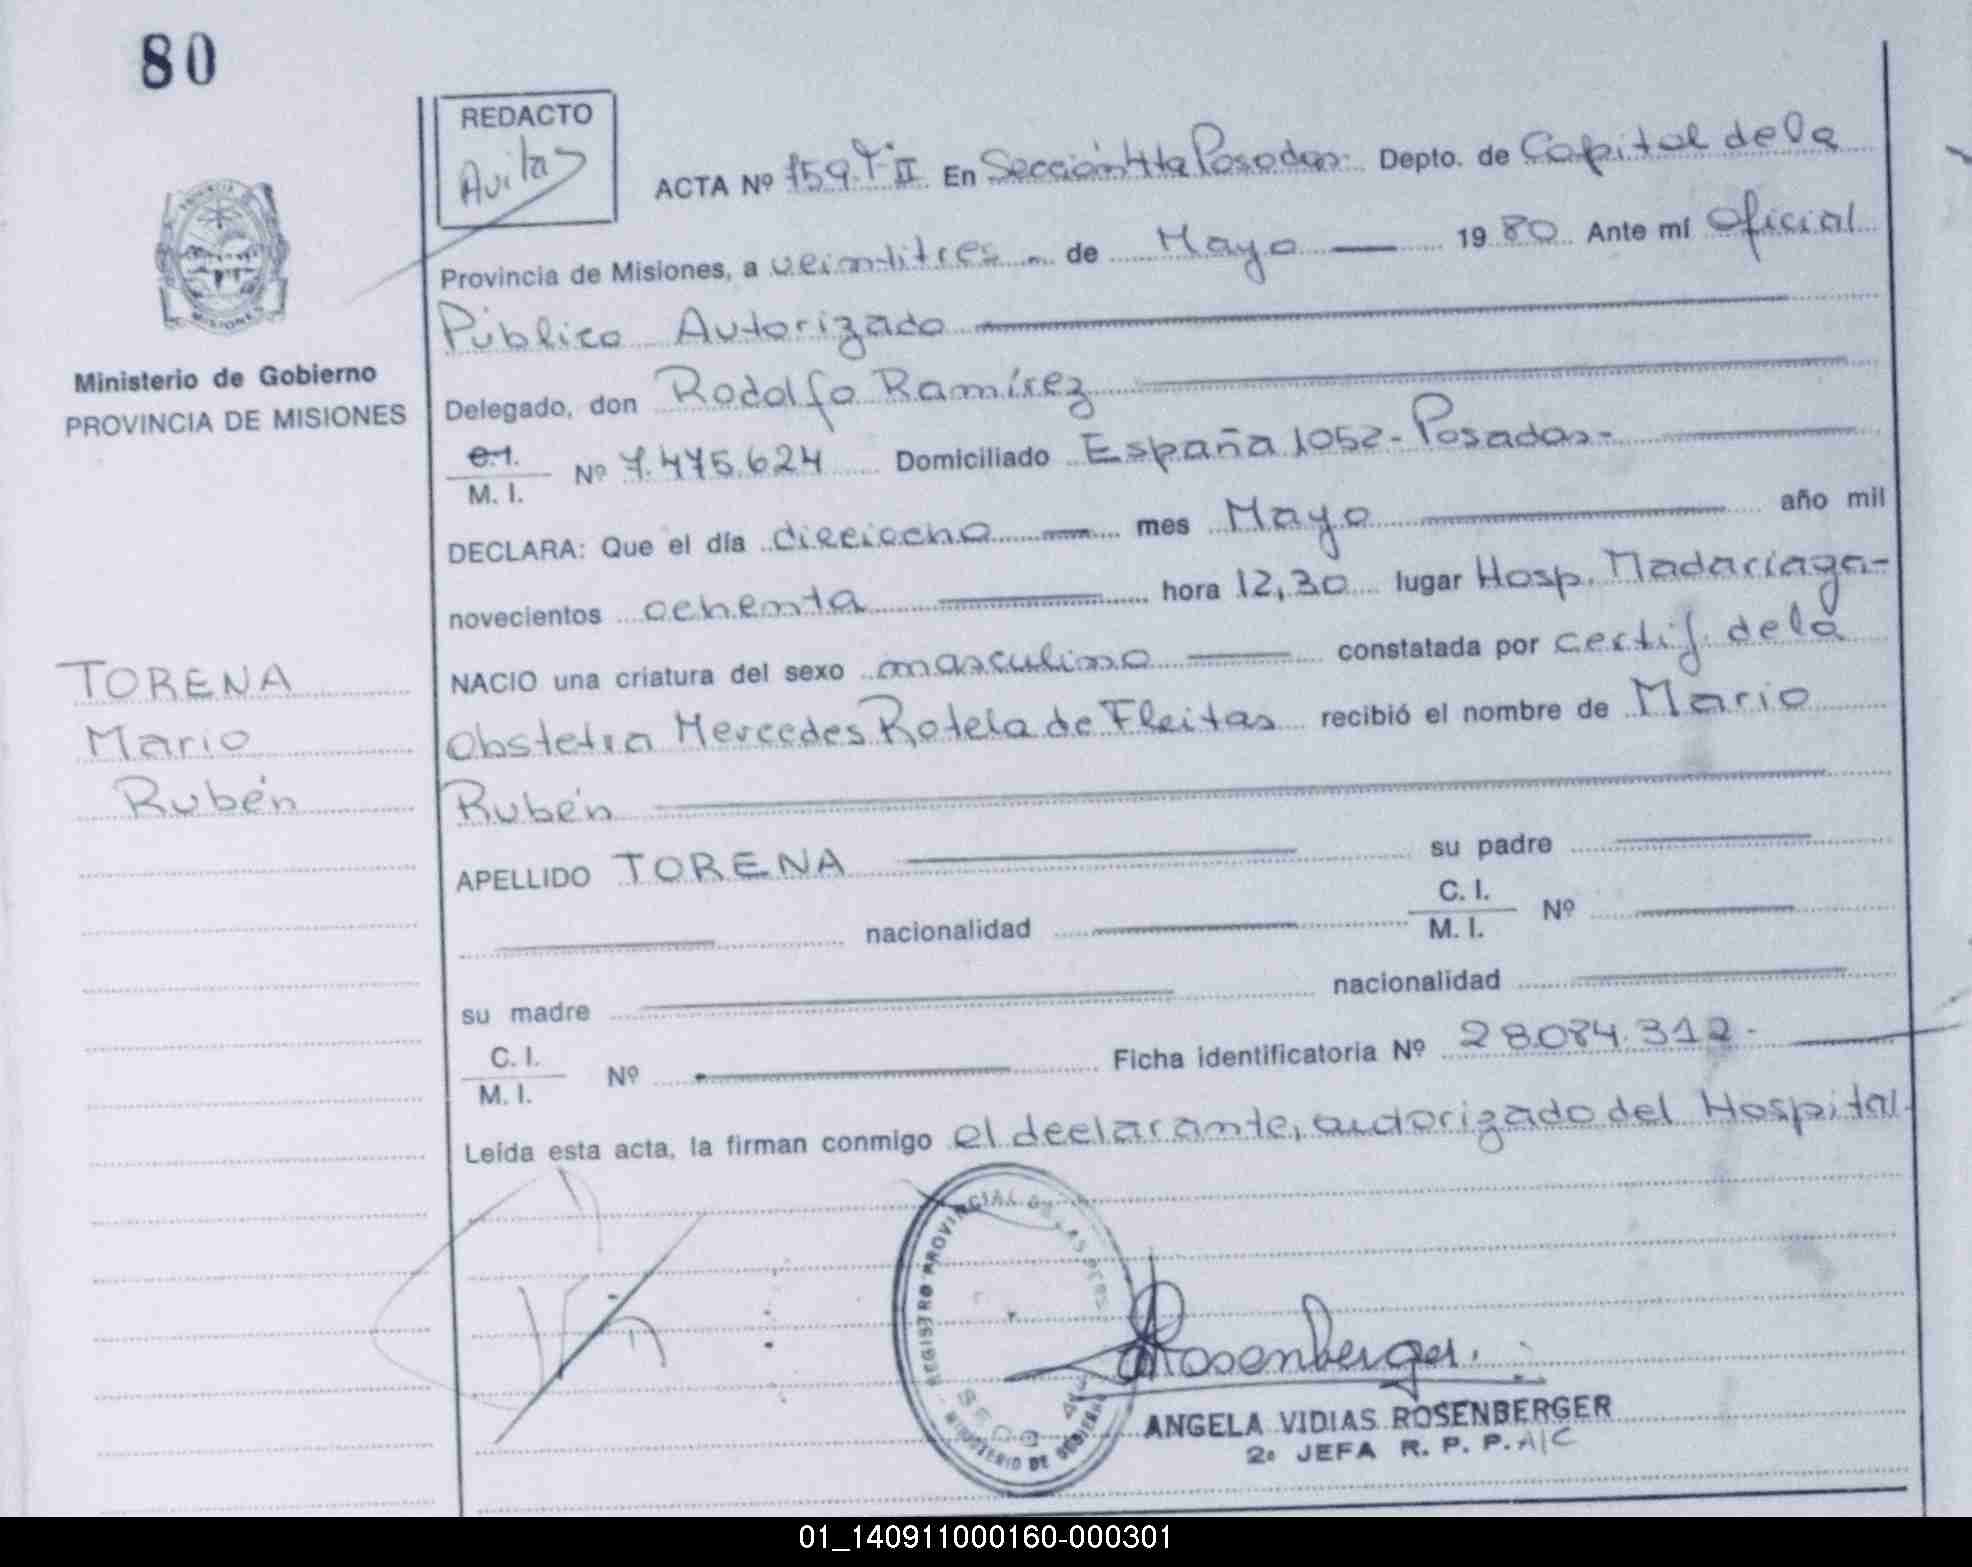 80
REDACTO
Avitas
ACTA Nº 159.Tº II En Sección 4ta Posadas. Depto. de Capital de la
Provincia de Misiones, a veintitres de Mayo 1980 Ante mí Oficial
Público Autorizado
MISIONES
Ministerio de Gobierno
PROVINCIA DE MISIONES
Delegado, don Rodolfo Ramírez
C.I.
M. I.
Nº 7.475.624 Domiciliado España 1052- Posadas-
DECLARA: Que el día dieciocho mes Mayo año mil
novecientos ochenta hora 12,30 lugar Hosp. Madariaga-
NACIO una criatura del sexo masculino constatada por certif. de la
TORENA
Mario
Rubén
Obstetra Mercedes Rotela de Fleitas recibió el nombre de Mario
Rubén
APELLIDO TORENA su padre
nacionalidad C. I.
M. I. Nº
su madre nacionalidad
C. I.
M. I.
Nº Ficha identificatoria Nº 28.084.312-
Leída esta acta, la firman conmigo el declarante, autorizado del Hospital.
REGISTRO PROVINCIAL DE LAS PERS
MINISTERIO DE GOBIERNO
Rosenberger.
ANGELA VIDIAS ROSENBERGER
2a JEFA R. P. P. A/C
01_140911000160-000301